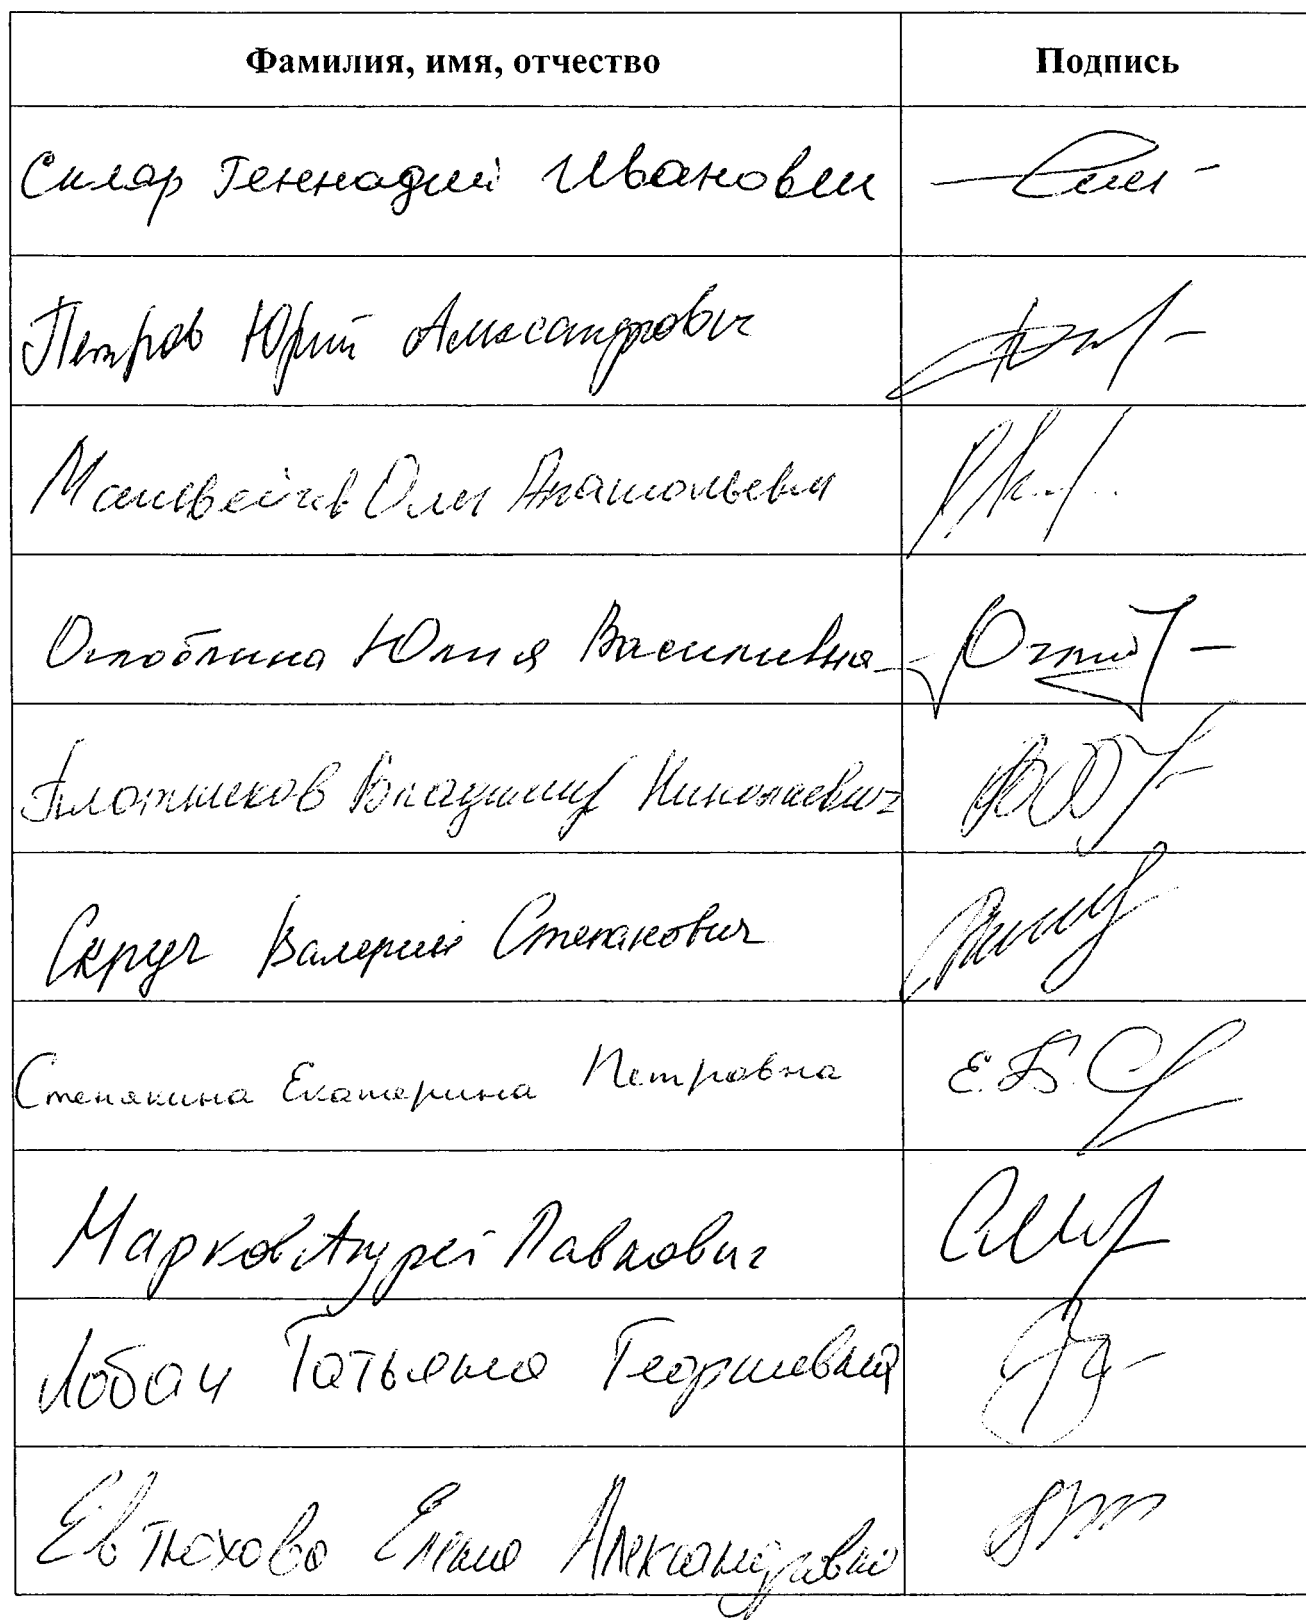 Фамилия, имя, отчество Подпись
Скляр Геннадий Иванович
Петров Юрий Александрович
Матвейчев Олег Анатольевич
Оглоблина Юлия Васильевна
Плотников Владимир Николаевич
Скруг Валерий Степанович
Стенякина Екатерина Петровна Е.П.С
Марков Андрей Павлович
Лобач Татьяна Георгиевна
Евтюхова Елена Александровна